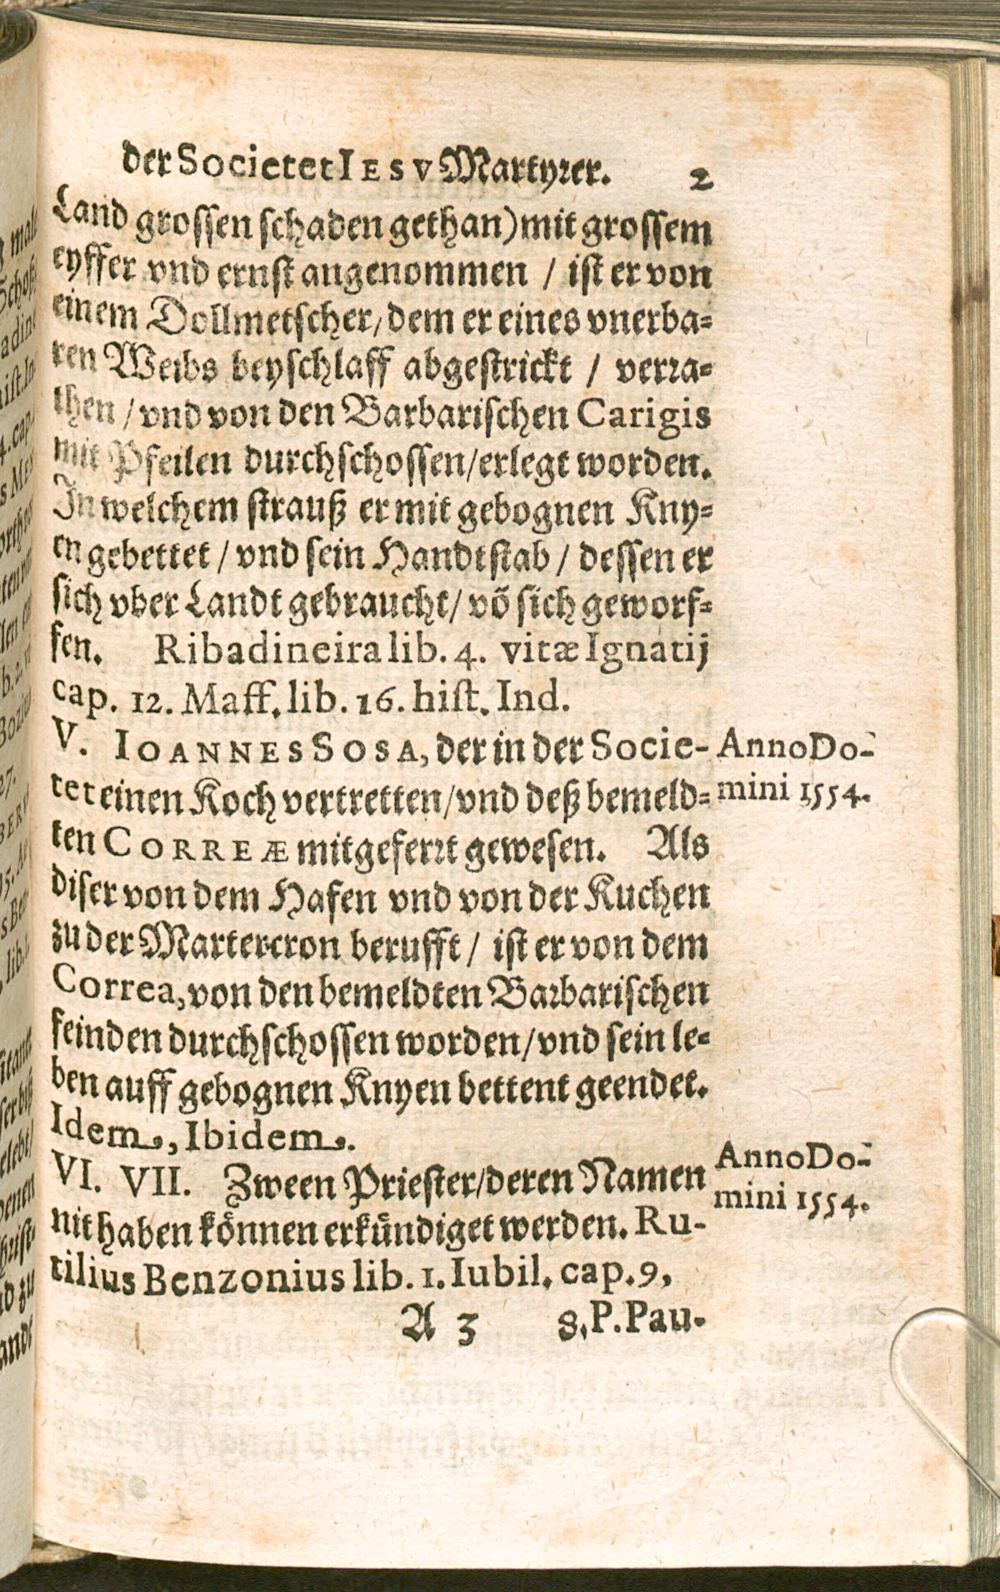 der Societet IESV Martyrer. 2
Land grossen schaden gethan) mit grossem
eyffer vnd ernst angenommen / ist er von
einem Dollmetscher, dem er eines vnerba-
ren Weibs beyschlaff abgestrickt / verra-
then / vnd von den Barbarischen Carigis
mit Pfeilen durchschossen/erlegt worden.
In welchem strauß er mit gebognen Kny-
en gebettet / vnd sein Handtstab / dessen er
sich vber Landt gebraucht/ võ sich geworf-
fen. Ribadineira lib. 4. vitæ Ignatij
cap. 12. Maff. lib. 16. hist. Ind.
V. IOANNES SOSA, der in der Socie-
tet einen Koch vertretten/vnd deß bemeld-
ten CORREÆ mitgeferrt gewesen. Als
diser von dem Hafen vnd von der Kuchen
zu der Martercron berufft / ist er von dem
Correa, von den bemeldten Barbarischen
feinden durchschossen worden/vnd sein le-
ben auff gebognen Knyen bettent geendet.
Idem, Ibidem.
VI. VII. Zween Priester/deren Namen
nit haben können erkündiget werden. Ru-
tilius Benzonius lib. 1. Iubil. cap. 9,
A 3 8. P. Pau-
Anno Do-
mini 1554.
Anno Do-
mini 1554.